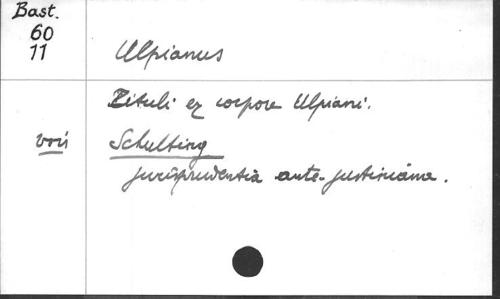 Bast.
60
11
Ulpianus
Tituli ex corpore Ulpiani.
voir Schulting
Jurisprudentia ante-justiniana.